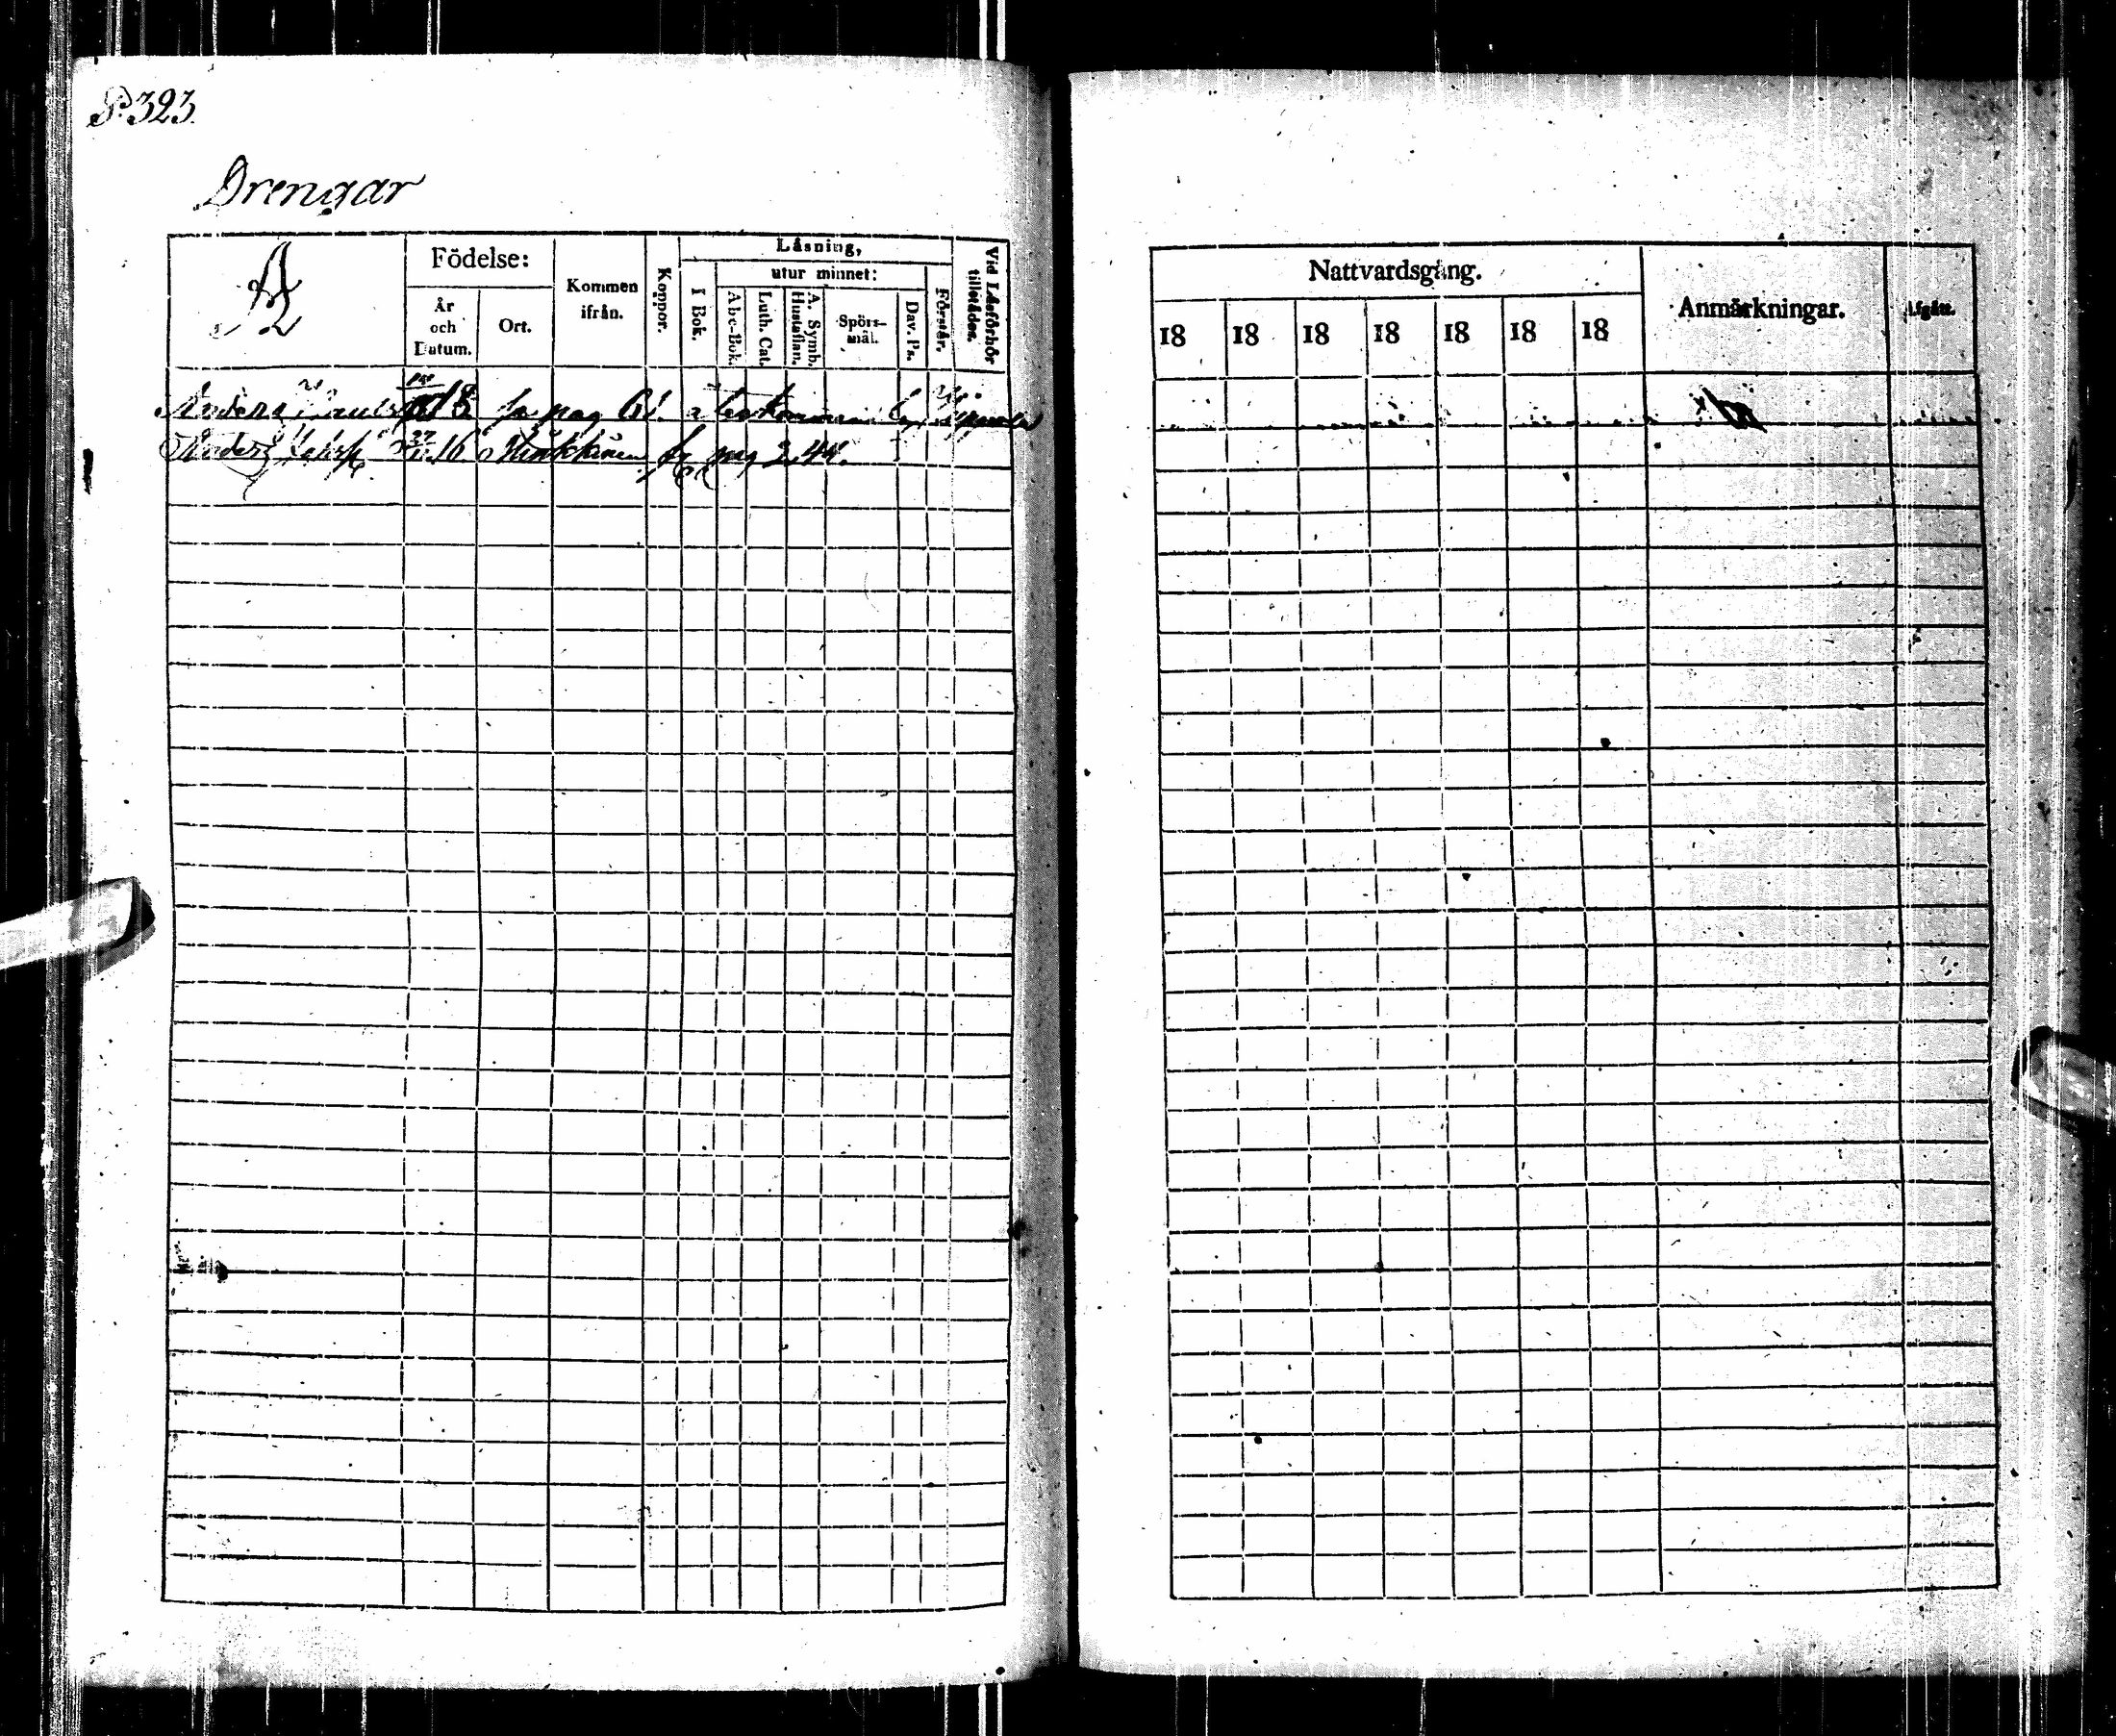 P. 323.
Drengar
A
Födelse:
År och Datum.
Ort.
Kommen ifrån.
Koppor.
Läsning,
I Bok.
utur minnet:
Abc-Bok.
Luth. Cat.
A. Symb. Hustaflan.
Spörs-mål.
Dav. Ps.
Förstår.
Vid Läsförhör tillstädes.
Anders 18 fr pag 61. återkommen
Anders 27 16 fr pag 244.
Nattvardsgång.
18 18 18 18 18 18 18
Anmärkningar.
Afgått.